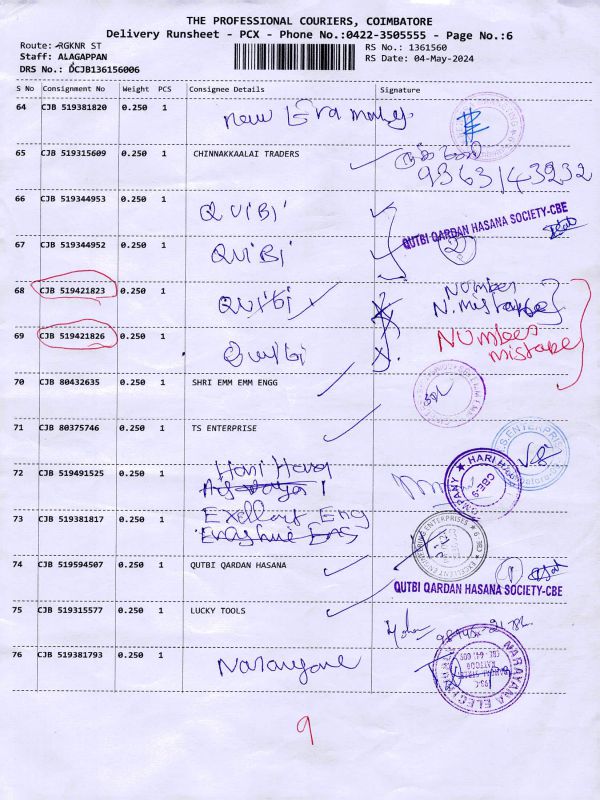 THE PROFESSIONAL COURIERS, COIMBATORE
Delivery Runsheet - PCX - Phone No.:0422-3505555 - Page No.:6
Route: RGKNR ST
RS No.: 1361560
Staff: ALAGAPPAN
RS Date: 04-May-2024
DRS No.: DCJB136156006
S No Consignment No Weight PCS Consignee Details Signature
64 CJB 519381820 0.250 1 New Era
65 CJB 519315609 0.250 1 CHINNAKKAALAI TRADERS
9363143232
66 CJB 519344953 0.250 1 QUIBI
QUTBI QARDAN HASANA SOCIETY-CBE
67 CJB 519344952 0.250 1 QUIBI 2
68 CJB 519421823 0.250 1 QUIBI Number
N. mistake
69 CJB 519421826 0.250 1 Quibi X. Number
mistake
70 CJB 80432635 0.250 1 SHRI EMM EMM ENGG
71 CJB 80375746 0.250 1 TS ENTERPRISE
72 CJB 519491525 0.250 1 Hari Haran
73 CJB 519381817 0.250 1 Exellent Eng
74 CJB 519594507 0.250 1 QUTBI QARDAN HASANA 1
QUTBI QARDAN HASANA SOCIETY-CBE
75 CJB 519315577 0.250 1 LUCKY TOOLS
76 CJB 519381793 0.250 1 Narayane
NARAYANA ELE
9